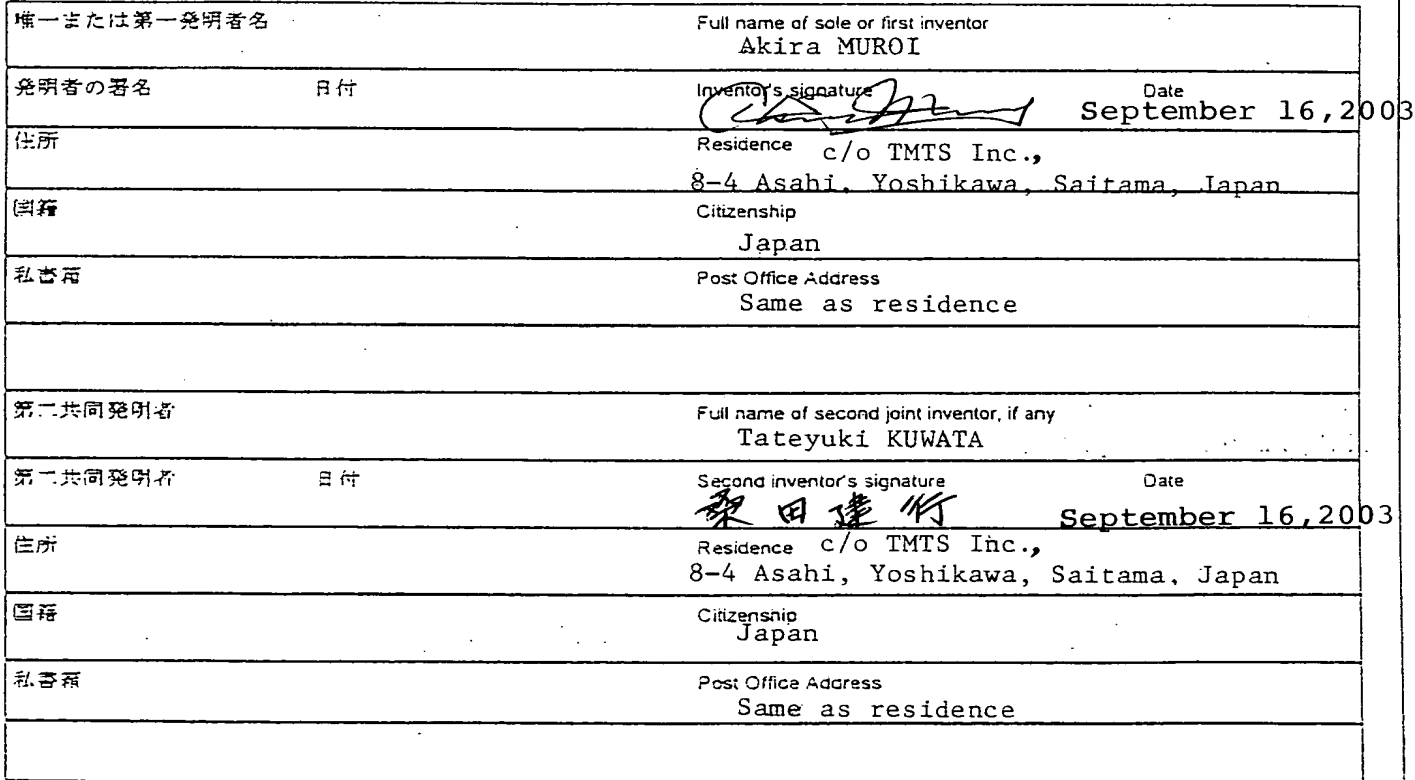 唯一または第一発明者名 Full name of sole or first inventor
Akira MUROI
発明者の署名 日付 Inventor's signature Date
September 16,2003
住所 Residence c/o TMTS Inc.,
8-4 Asahi, Yoshikawa, Saitama, Japan
国籍 Citizenship
Japan
私書箱 Post Office Address
Same as residence
第二共同発明者 Full name of second joint inventor, if any
Tateyuki KUWATA
第二共同発明者 日付 Second inventor's signature Date
桑田建行 September 16,2003
住所 Residence c/o TMTS Inc.,
8-4 Asahi, Yoshikawa, Saitama, Japan
国籍 Citizenship
Japan
私書箱 Post Office Address
Same as residence